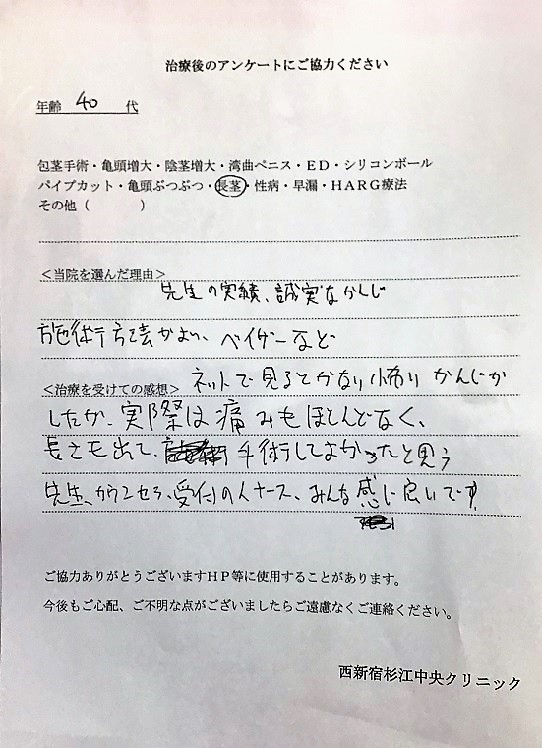 治療後のアンケートにご協力ください
年齢 40 代
包茎手術・亀頭増大・陰茎増大・湾曲ペニス・ED・シリコンボール
パイプカット・亀頭ぶつぶつ・長茎・性病・早漏・HARG療法
その他（　　　）
＜当院を選んだ理由＞
先生の実績、誠実なかんじ
施術方法がよい、ベイザーなど
＜治療を受けての感想＞ ネットで見るとかなり怖い かんじが
したが、実際は痛みもほとんどなく、
長さも出て、手術してよかったと思う
先生、カウンセラ、受付の人ナース、みんな感じ良いです
ご協力ありがとうございますHP等に使用することがあります。
今後もご心配、ご不明な点がございましたらご遠慮なくご連絡ください。
西新宿杉江中央クリニック